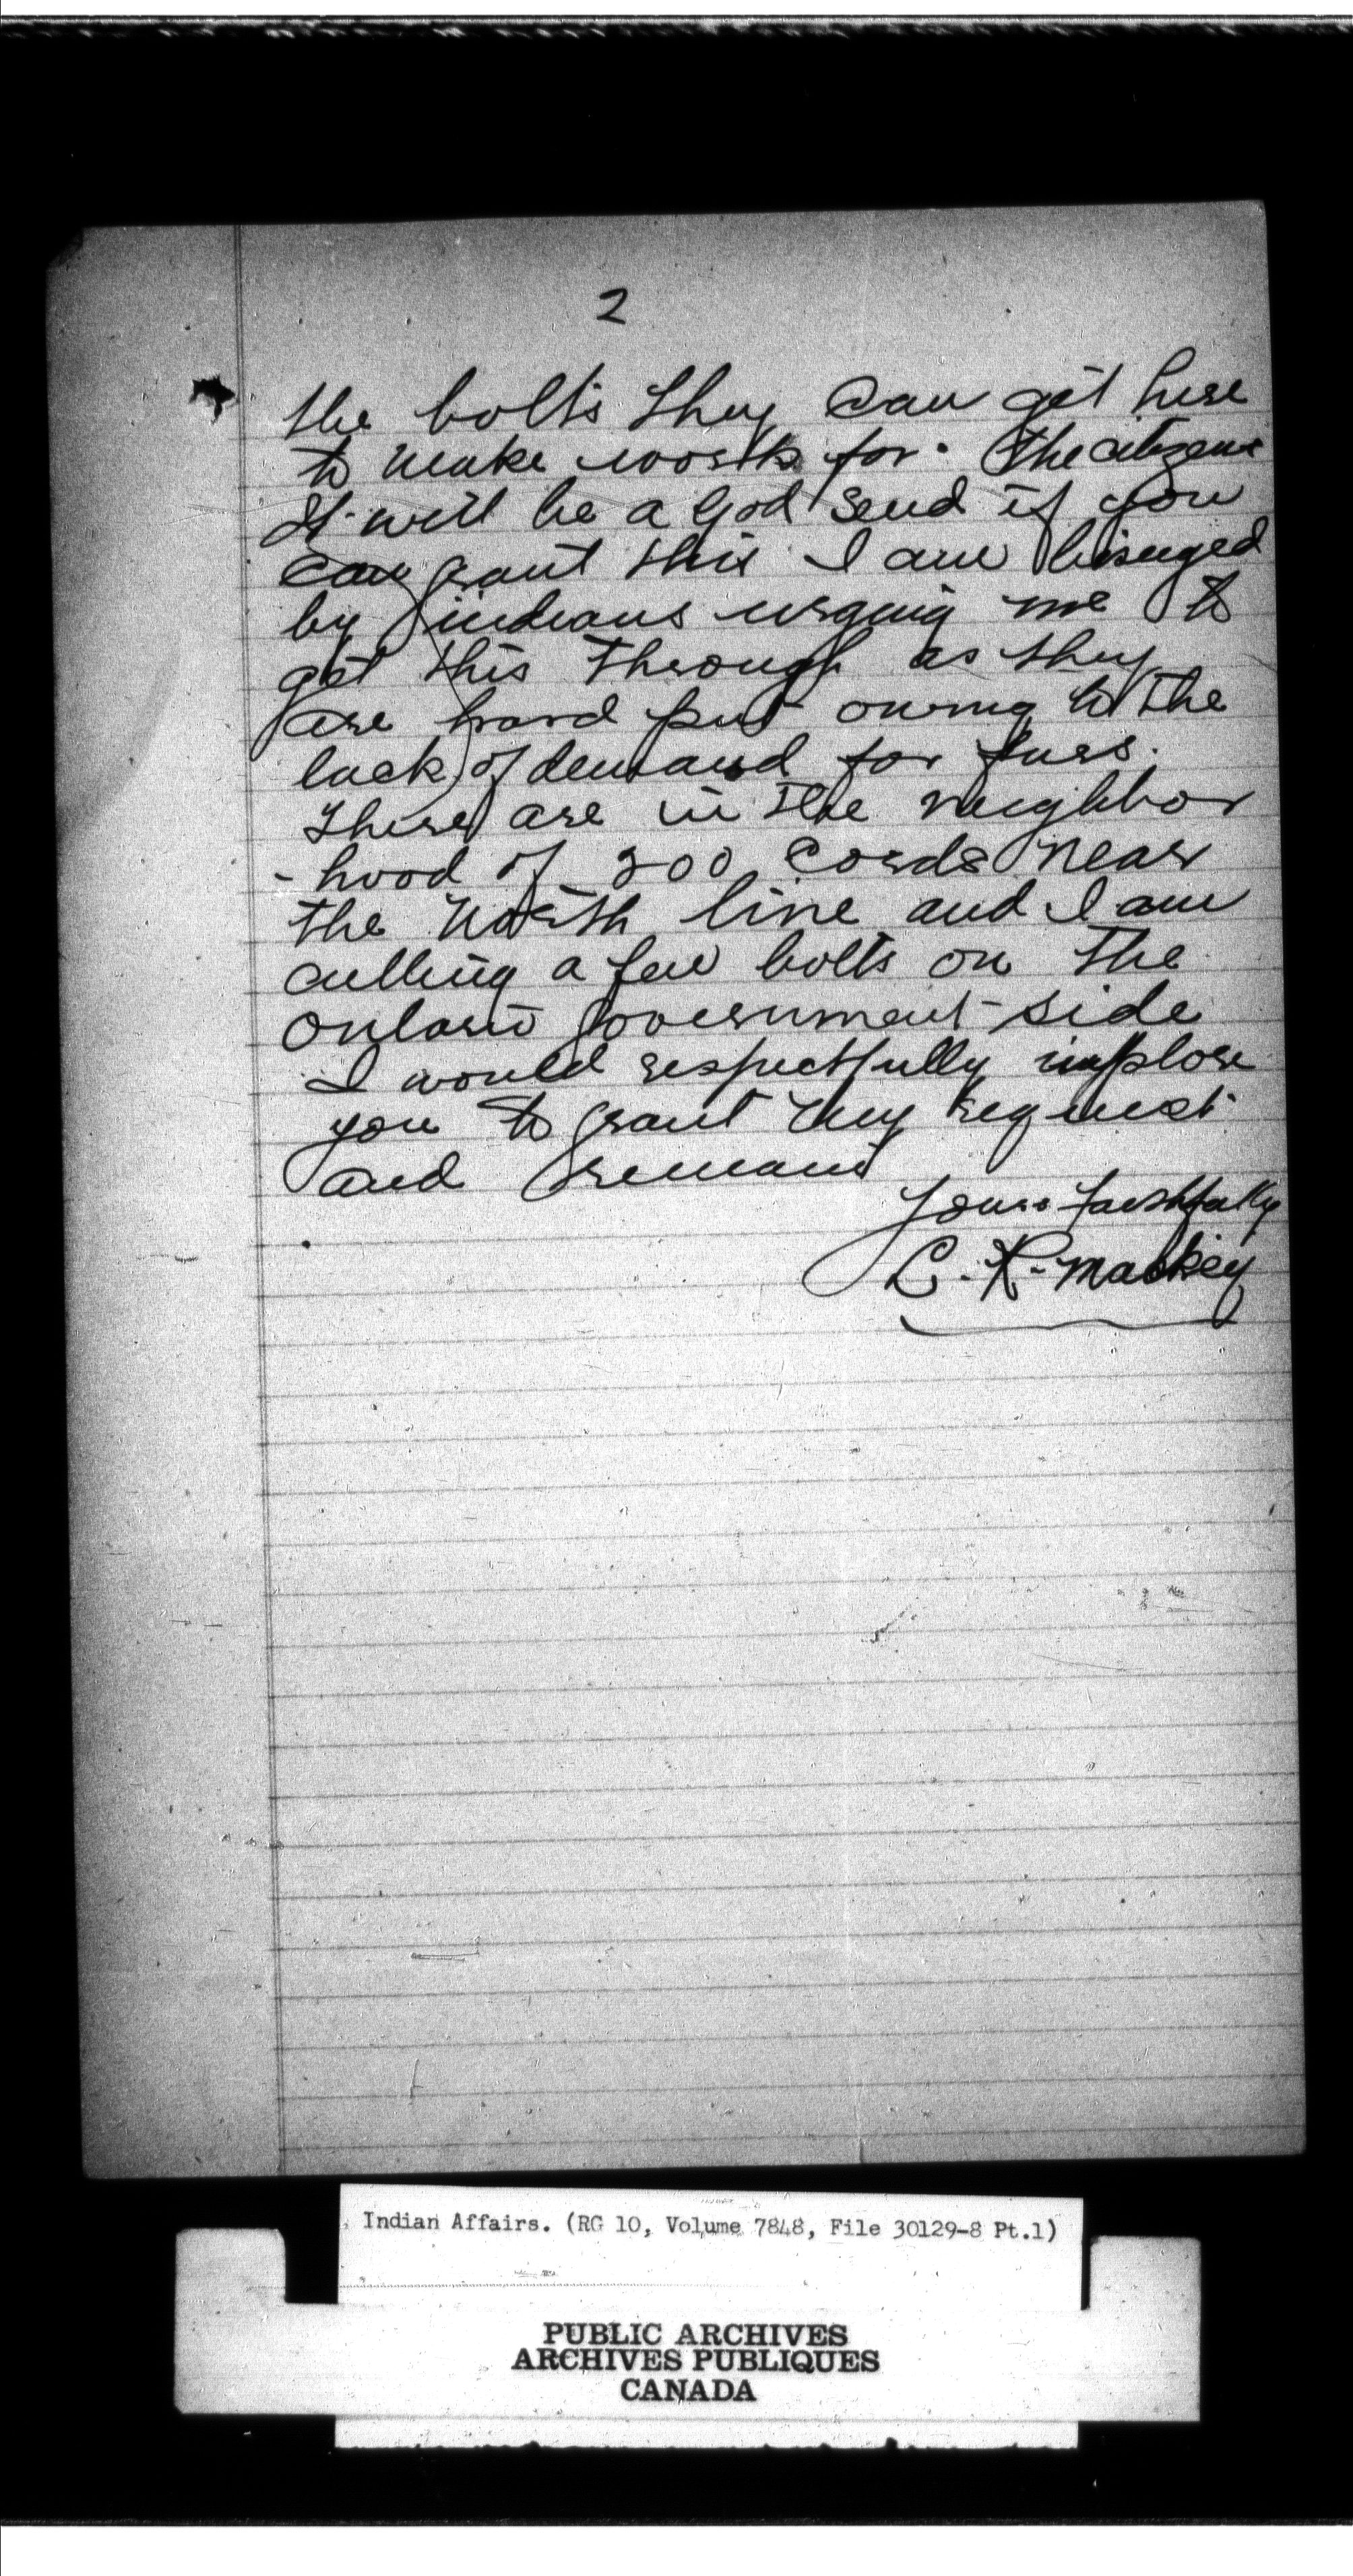 2
the bolts they can get here
to make work for. the citizens
It will be a god send if you
can grant this I am beseiged
by indians urging me to
get this through as they
are hard put owing to the
lack of demand for furs.
There are in the neighbor
- hood of 200 cords near
the North line and I am
cutting a few bolts on the
Ontario government side
I would respectfully implore
you to grant my request
and remain
Yours faithfully
R. Mackey
Indian Affairs. (RG 10, Volume 7848, File 30129-8 Pt.1)
PUBLIC ARCHIVES
ARCHIVES PUBLIQUES
CANADA